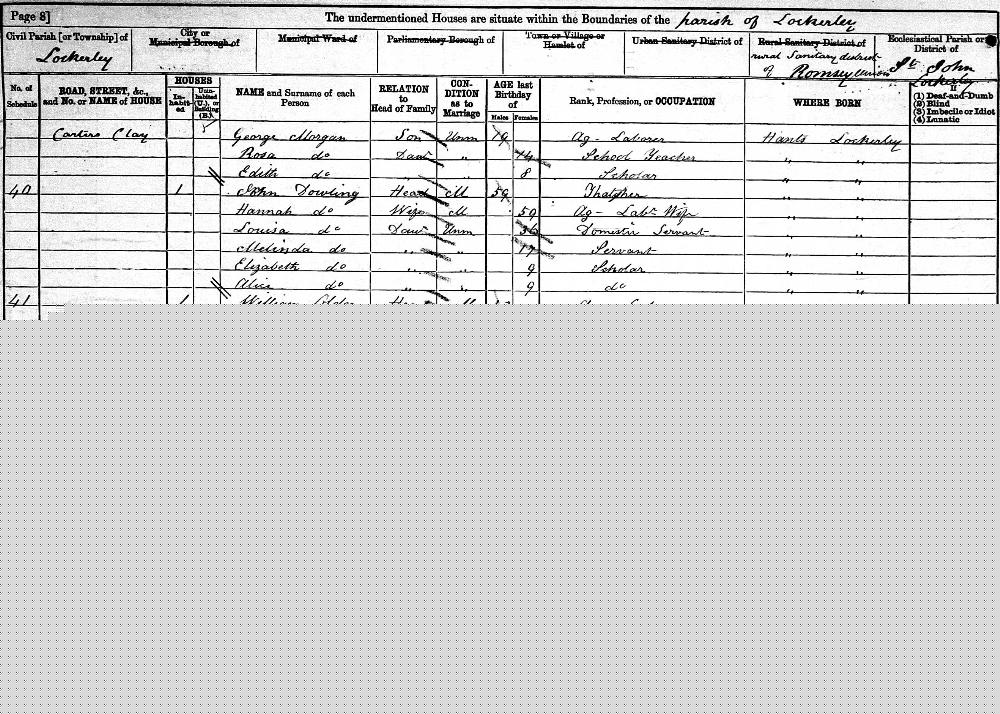 Page 8] The undermentioned Houses are situate within the Boundaries of the parish of Lockerley
Civil Parish [or Township] of City or Municipal Borough of Municipal Ward of Parliamentary Borough of Town or Village or Hamlet of Urban Sanitary District of Rural Sanitary District of Ecclesiastical Parish or District of
Lockerley rural Sanitary district of Romsey Union St John Lockerley
No. of Schedule ROAD, STREET, &c., and No. or NAME of HOUSE HOUSES Inhabited Uninhabited (U.), or Building (B.) NAME and Surname of each Person RELATION to Head of Family CONDITION as to Marriage AGE last Birthday of Males Females Rank, Profession, or OCCUPATION WHERE BORN (1) Deaf-and-Dumb (2) Blind (3) Imbecile or Idiot (4) Lunatic
Carters Clay George Morgan Son Unm 19 Ag- Laborer Hants Lockerley
Rosa do Daur " 14 School Teacher " "
Edith do " " 8 Scholar " "
40 1 John Dowling Head M 59 Thatcher " "
Hannah do Wife M 59 Ag- Labr Wife " "
Louisa do Daur Unm 36 Domestic Servant " "
Melinda do " " 17 Servant " "
Elizabeth do " " 9 Scholar " "
Alice do " " 9 do " "
41 1 William